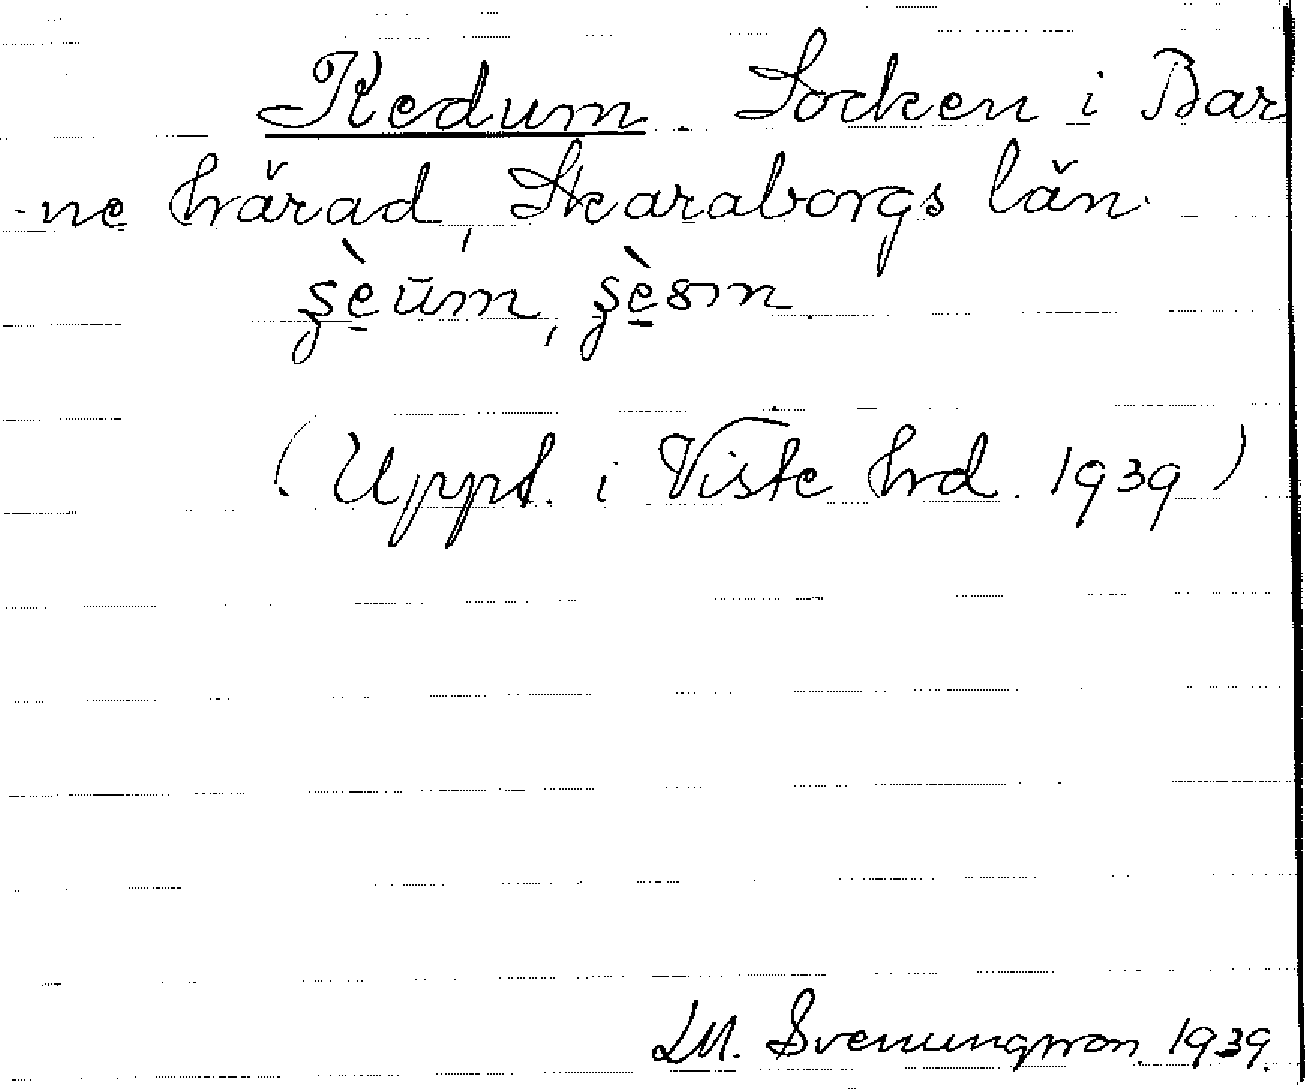 Kedum. Socken i Bar
-ne härad, Skaraborgs län.
(Uppt. i Viste hrd. 1939)
LM. Svenungsson 1939.